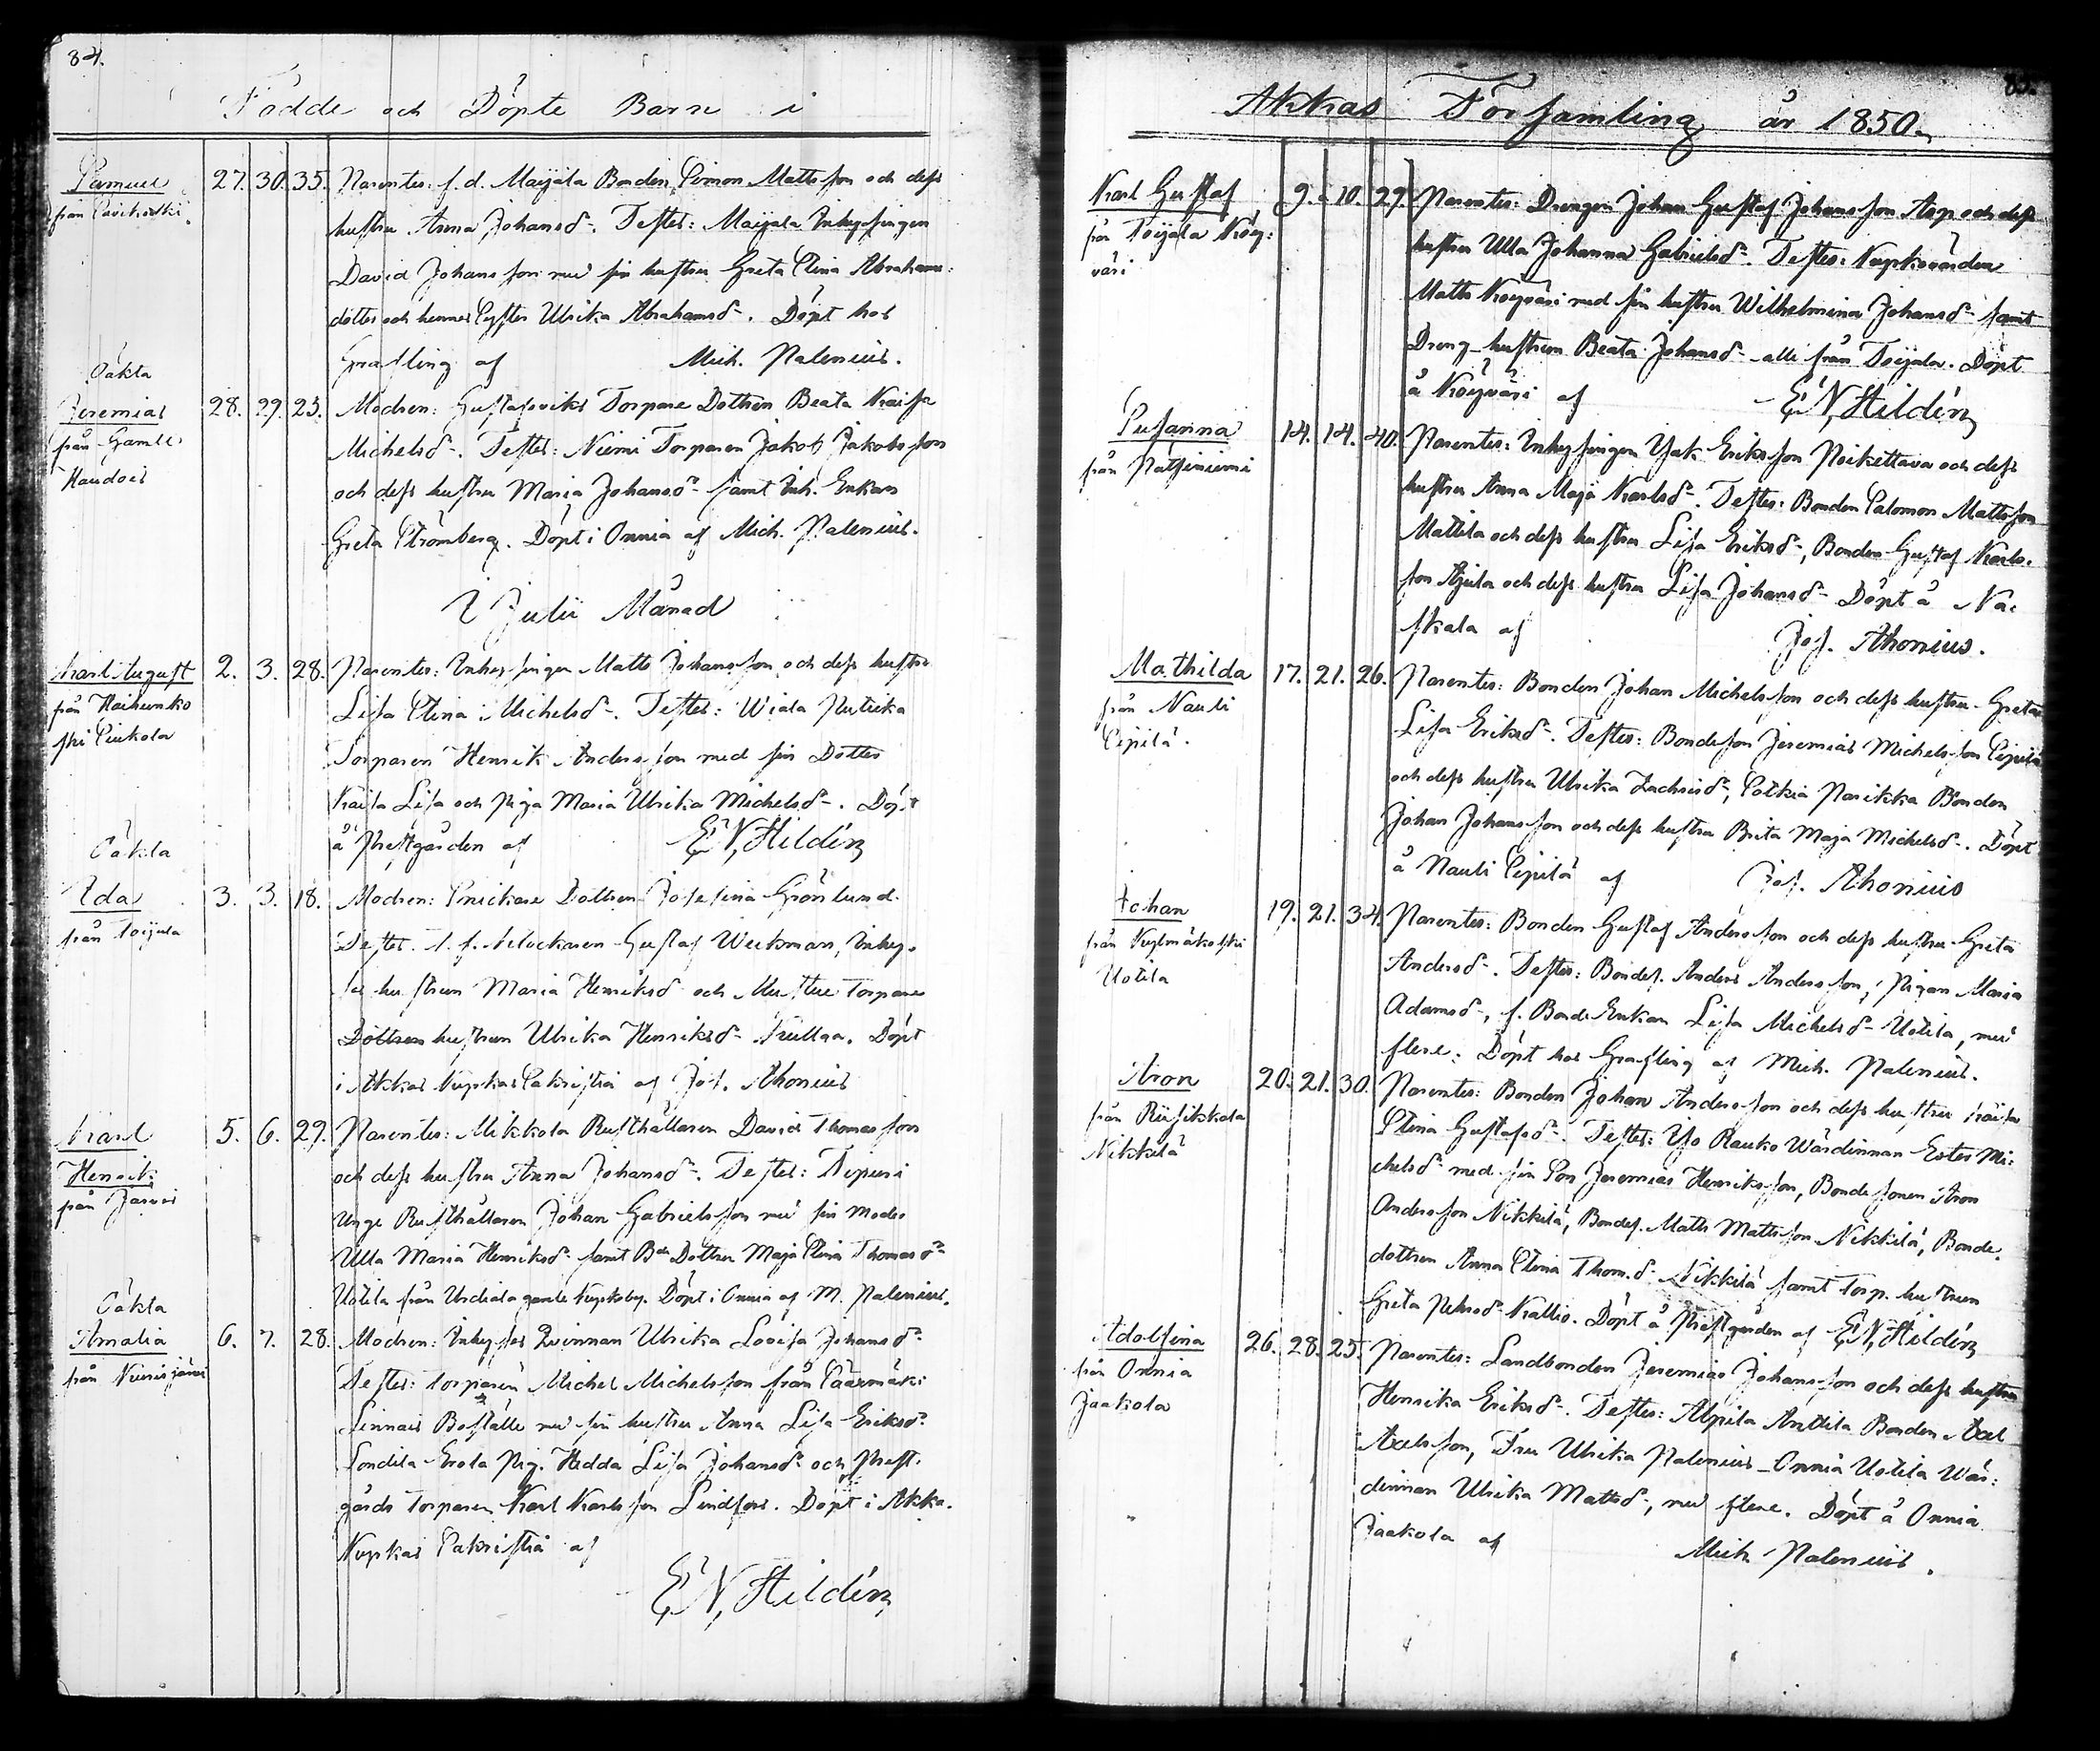 84.
Födde och Döpte Barn i
Samuel 27. 30. 35. Parentes: f. d. Maijala Bonden Simon Mattsson och dess
från hustru Anna Johansd:r. Testes: Maijala Inhysingen
David Johansson med sin hustru Greta Stina Abrahams:
dotter och hennes Syster Ulrika Abrahamsd:r. Döpt hos
Grafling af Mich. Palenius.
Oäkta
Jeremias 28. 29. 23. Modren: Gustafsviks Torpare Dottren Beata Kaisa
från Gamle Michelsd:r. Testes: Niemi Torparen Jakob Jakobsson
Haudois och dess hustru Maria Johansd:r samt Inh. Enkan
Greta Strömberg. Döpt i Onnia af Mich. Palenius.
I Julii Månad
Karl August 2. 3. 28. Parentes: Inhysingen Matts Johansson och dess hustru
från Haihunko Lisa Stina Michelsd:r. Testes: Wiala Putikka
ski Siukola Torparen Henrik Andersson med sin Dotter
Kaisa Lisa och Piga Maria Ulrika Michelsd:r. Döpt
å Prestgården af E. N. Hildén
Oäkta
Ida 3. 3. 18. Modren: Snickare Dottren Josefina Grönlund.
från Toijala Testes: Klockaren Gustaf Weckman, Inhy-
ses hustrun Maria Henriksd och Torpare
Dottren hustrun Ulrika Henriksd:r Kullaa. Döpt
i Akkas Kyrkas Sakristia af Jos. Ahonius
Karl 5. 6. 29. Parentes: Mikkola Rusthållaren David Thomasson
Henrik och dess hustru Anna Johansd:r. Testes:
från Unge Rusthållaren Johan Gabrielsson med sin Moder
Ulla Maria Henriksd:r samt B:de Dottren Maja Stina Thomasd:r
Uotila från Urdiala gamle Kyrkoby. Döpt i Onnia af M. Palenius.
Oäkta
Amalia 6. 7. 28. Modren: Inhyses Qvinnan Ulrika Lovisa Johansd:r
från Testes: Torparen Michel Michelsson från Säärmäki
Linnais Boställe med sin hustru Anna Lisa Eriksd:r
Erola Pig. Hedda Lisa Johansd:r och Prest-
gårds Torparen Karl Karlsson Lindfors. Döpt i Akka.
Kyrkas Sakristia af
E. N. Hildén
85.
Akkas Församling år 1850.
Karl Gustaf 9. 10. 29. Parentes: Drengen Johan Gustaf Johansson Arp och dess
från Toijala Köy: hustru Ulla Johanna Gabrielsd:r. Testes: Kyrkovärden
väri Matts Köyväri med sin hustru Wilhelmina Johansd:r samt
Dreng-hustrun Beata Johansd:r alle från Toijala. Döpt
å Köyväri af E. N. Hildén
Susanna 14. 14. 40. Parentes: Inhysingen Isak Eriksson Poikettava och dess
från Pätsiniemi hustru Anna Maja Karlsd:r. Testes: Bonden Salomon Mattsson
Mattila och dess hustru Lisa Eriksd:r, Bonden Gustaf Karls-
son och dess hustru Lisa Johansd:r Döpt å Nä-
skala af Jos. Ahonius.
Mathilda 17. 21. 26. Parentes: Bonden Johan Michelsson och dess hustru Greta
från Nauli Lisa Eriksd:r. Testes: Bondeson Jeremias Michelsson Sipilä
Sipilä. och dess hustru Ulrika Zachrisd:r, Sotkia Parikka Bonden
Johan Johansson och dess hustru Brita Maja Michelsd:r. Döpt
å Nauli Sipilä af Jos. Ahonius
Johan 19. 21. 34. Parentes: Bonden Gustaf Andersson och dess hustru Greta
från Kylmäkoski Andersd:r. Testes: Bondes. Anders Andersson, Pigan Maria
Uotila Adamsd:r, f. Bonde Enkan Lisa Michelsd:r Uotila, med
flere. Döpt hos Grafling af Mich. Palenius.
Aron 20. 21. 30. Parentes: Bonden Johan Andersson och dess hustru Kaisa
från Riisikkala Stina Gustafsd:r. Testes: Yo Rauko Wärdinnan Ester Mi:
Nikkilä chelsd:r med sin Son Jeremias Henriksson, Bondesonen Aron
Andersson Nikkilä, Bondes. Matts Mattsson Nikkilä, Bonde.
dottren Anna Stina Thom.d:r Nikkilä samt Torp. hustrun
Greta Kallio. Döpt å Prestgården af E. N. Hildén
Adolfina 26. 28. 25. Parentes: Landbonden Jeremias Johansson och dess hustru
från Onnia Henrika Eriksd:r. Testes: Alpila Anttila Bonden Axel
Jaakola Axelsson, Fru Ulrika Palenius - Onnia Uotila Wär:
dinnan Ulrika Mattsd:r, med flere. Döpt å Onnia
Jaakola af Mich Palenius.